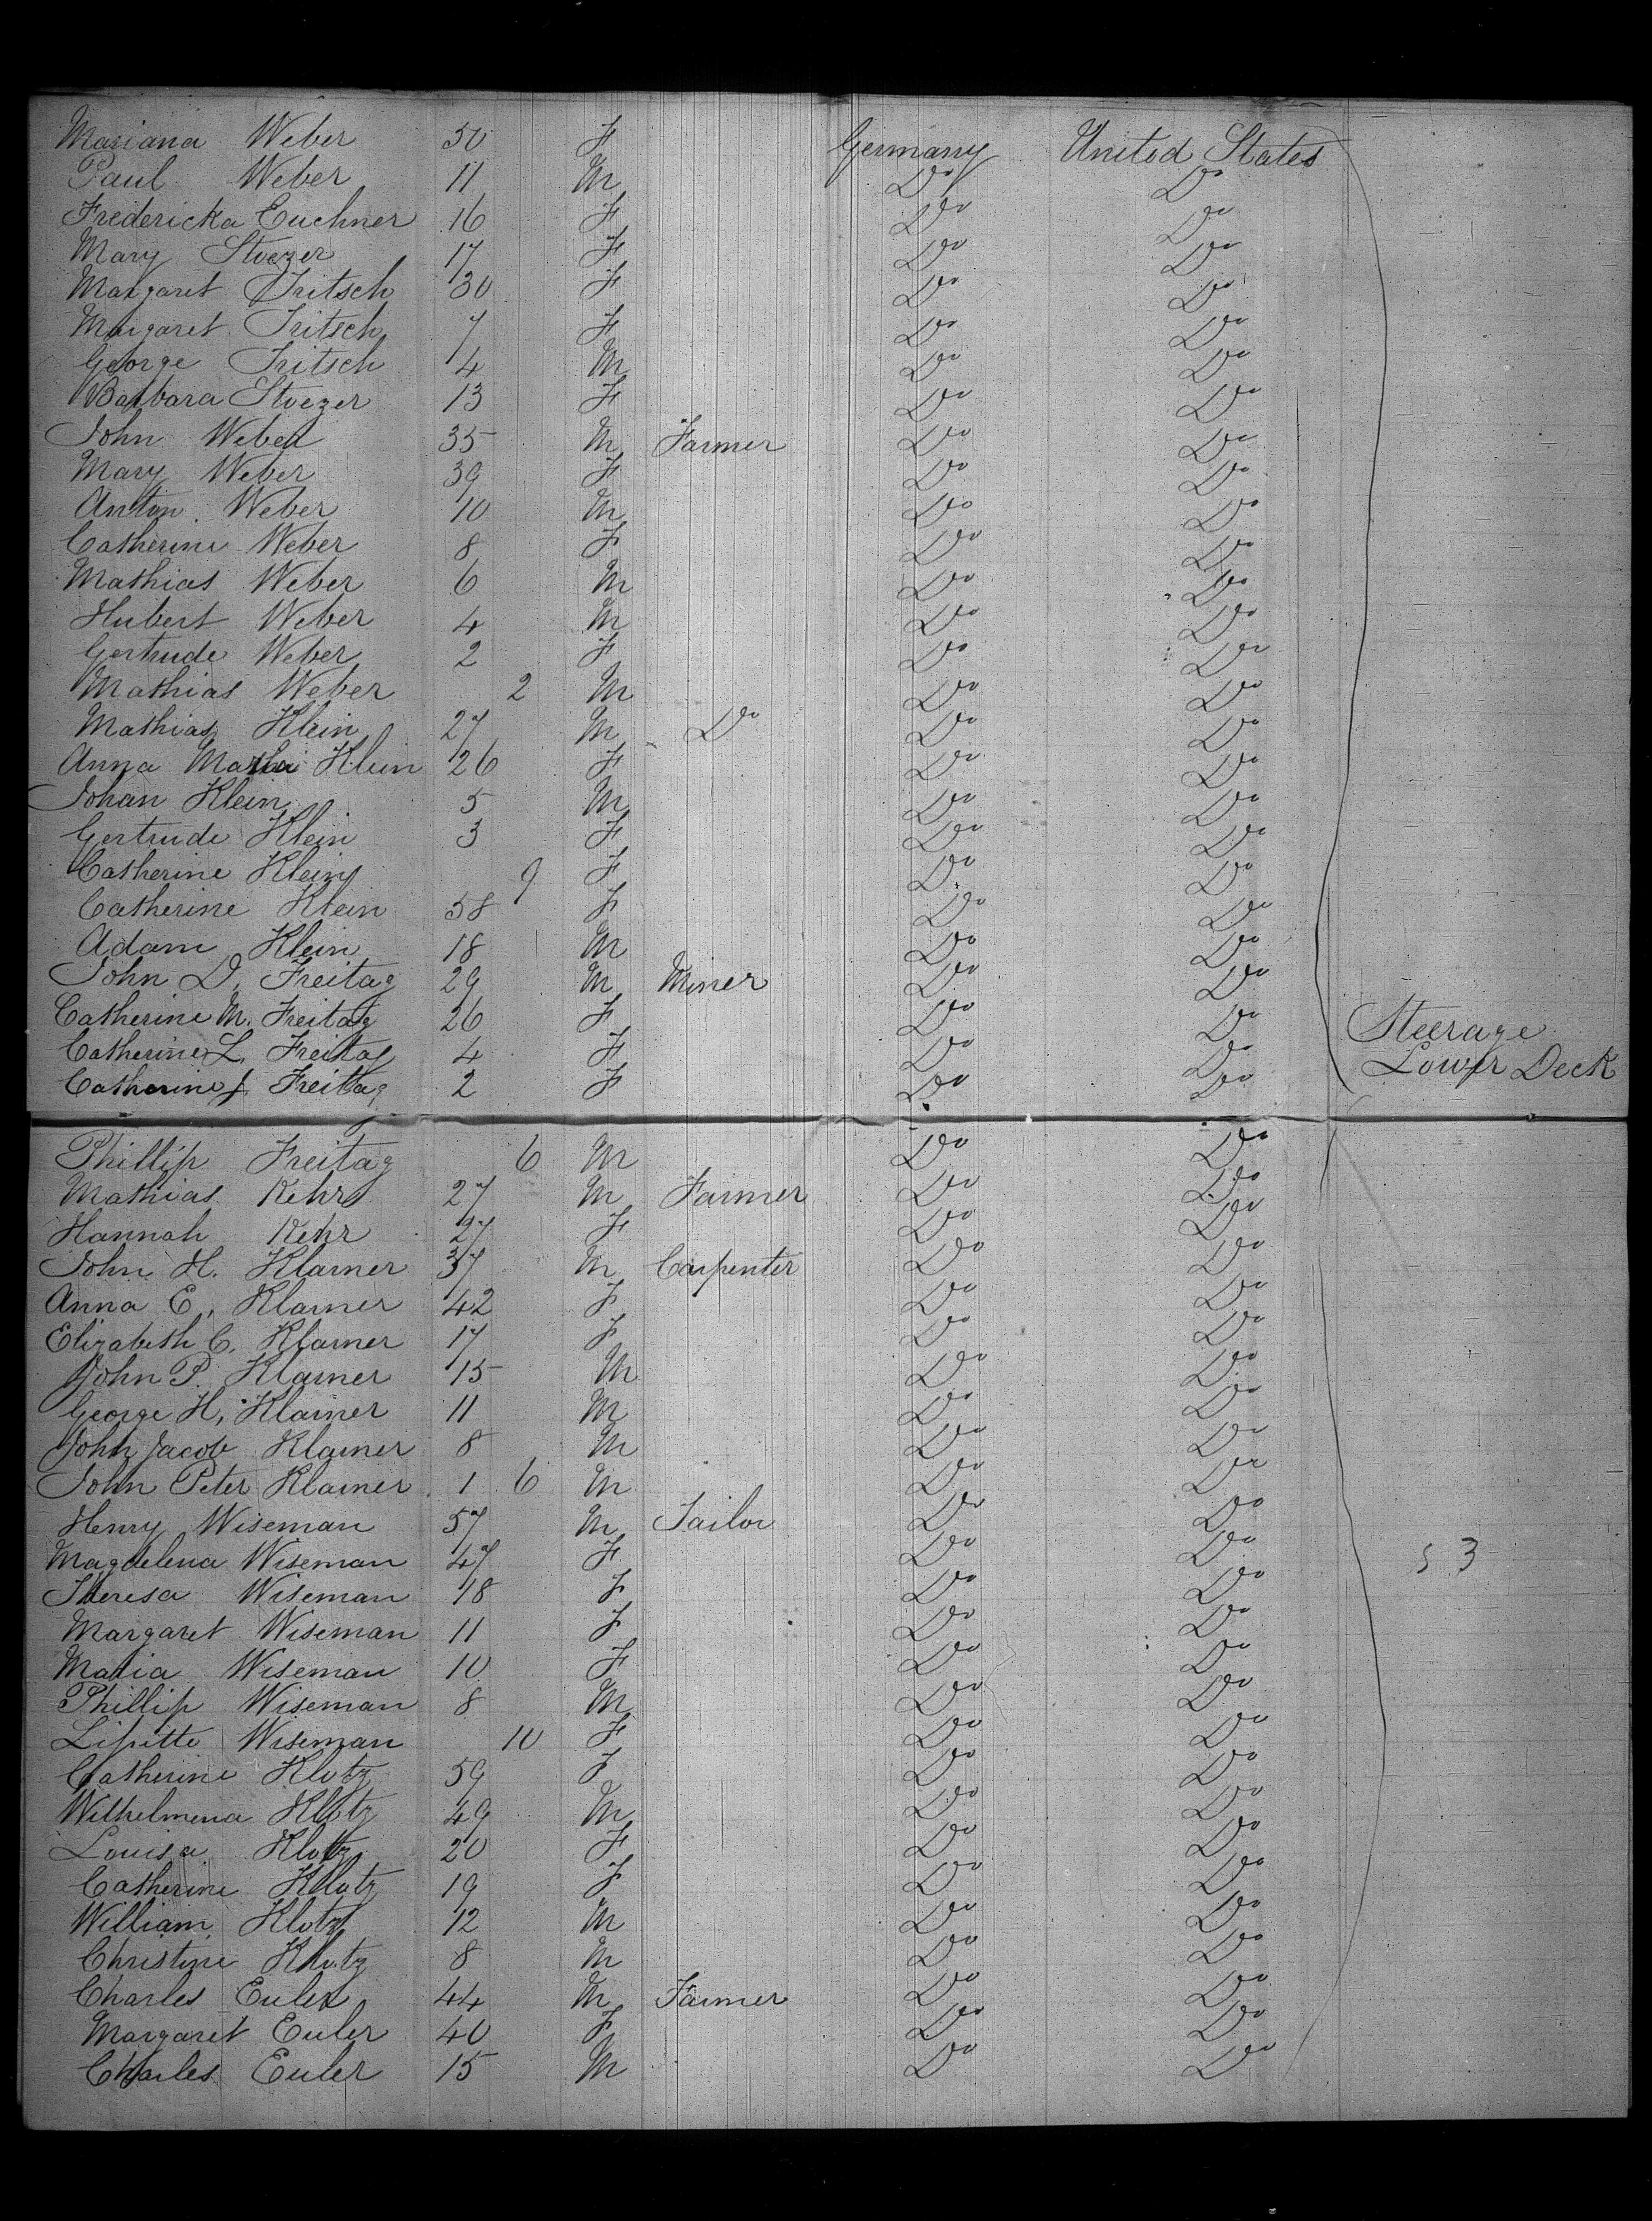 Mariana Weber 50 F Germany United States
Paul Weber 11 M Do Do
Fredericka Euchner 16 F Do Do
Mary Stoezer 17 F Do Do
Margaret Fritsch 30 F Do Do
Margaret Fritsch 7 F Do Do
George Fritsch 4 M Do Do
Barbara Stoezer 13 F Do Do
John Weber 35 M Farmer Do Do
Mary Weber 39 F Do Do
Anton Weber 10 M Do Do
Catherine Weber 8 F Do Do
Mathias Weber 6 M Do Do
Hubert Weber 4 M Do Do
Gertrude Weber 2 F Do Do
Mathias Weber 2 M Do Do
Mathias Klein 27 M Do Do Do
Anna Maria Klein 26 F Do Do
Johan Klein 5 M Do Do
Gertrude Klein 3 F Do Do
Catherine Klein 9 F Do Do
Catherine Klein 58 F Do Do
Adam Klein 18 M Do Do
John D. Freitag 29 M Miner Do Do
Catherine M. Freitag 26 F Do Do Steerage
Catherine L. Freitag 4 F Do Do Lower Deck
Catherine J. Freitag 2 F Do Do
Phillip Freitag 6 M Do Do
Mathias Kehr 27 M Farmer Do Do
Hannah Kehr 27 F Do Do
John H. Klamer 37 M Carpenter Do Do
Anna E. Klamer 42 F Do Do
Elizabeth C. Klamer 17 F Do Do
John P. Klamer 15 M Do Do
George H. Klamer 11 M Do Do
John Jacob Klamer 8 M Do Do
John Peter Klamer 1 6 M Do Do
Henry Wiseman 57 M Tailor Do Do
Magdelena Wiseman 47 F Do Do 53
Theresa Wiseman 18 F Do Do
Margaret Wiseman 11 F Do Do
Maria Wiseman 10 F Do Do
Phillip Wiseman 8 M Do Do
Lipitte Wiseman 10 F Do Do
Catherine Klotz 59 F Do Do
Wilhelmena Klotz 49 M Do Do
Louisa Klotz 20 F Do Do
Catherine Klotz 19 F Do Do
William Klotz 12 M Do Do
Christine Klotz 8 M Do Do
Charles Euler 44 M Farmer Do Do
Margaret Euler 40 F Do Do
Charles Euler 15 M Do Do